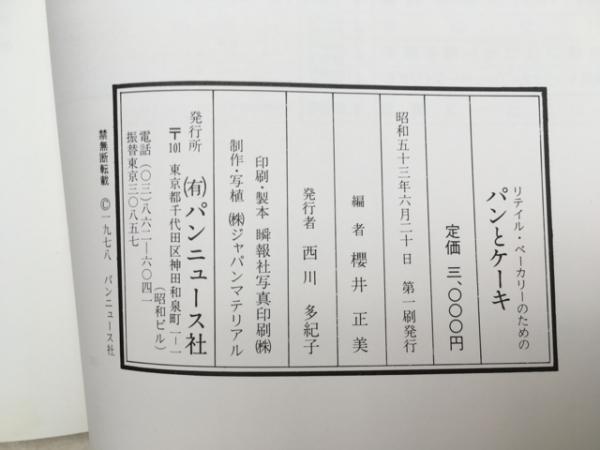 リテイル・ベーカリーのための
パンとケーキ
定価 三、〇〇〇円
昭和五十三年六月二十日 第一刷発行
編者 櫻井正美
発行者 西川多紀子
印刷・製本 瞬報社写真印刷㈱
制作・写植 ㈱ジャパンマテリアル
発行所 ㈲パンニュース社
〒101 東京都千代田区神田和泉町一ー一
(昭和ビル)
電話(〇三)八六二ー六〇四一
振替東京三〇八五七
禁無断転載 ©一九七八 パンニュース社